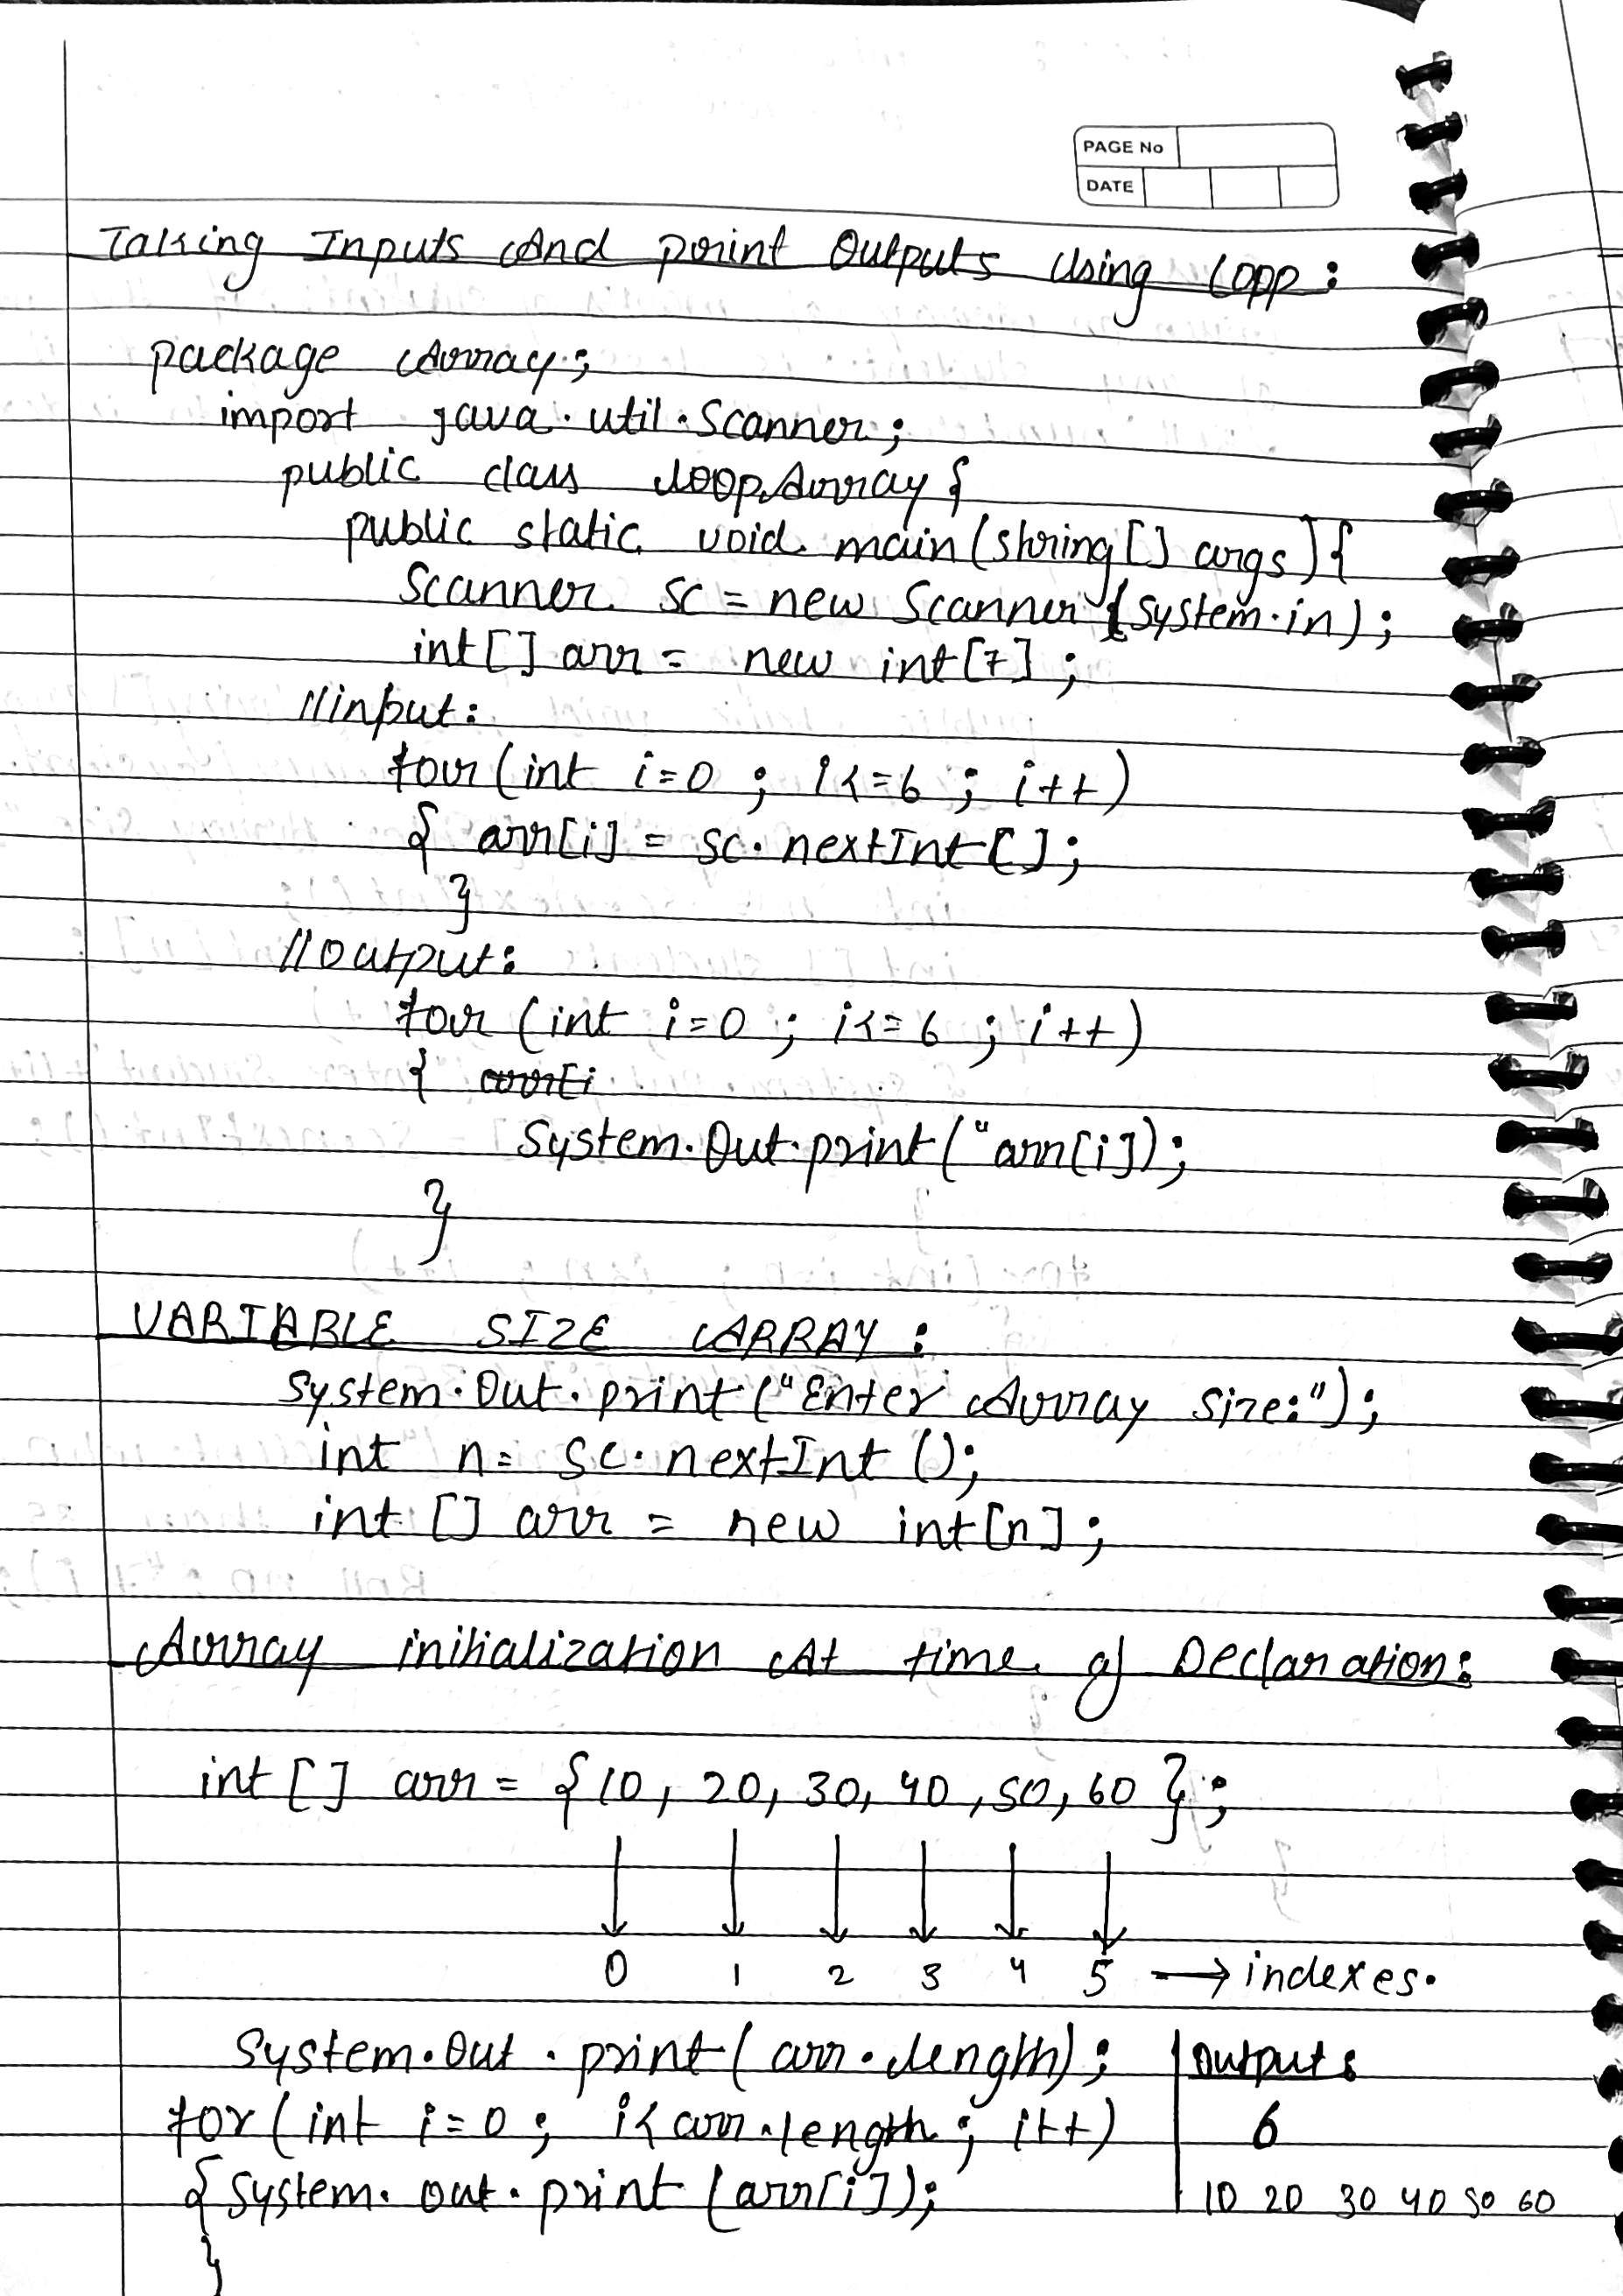 PAGE No
DATE
Taking Inputs And print Outputs Using Lopp :
package Array;
import java.util.Scanner;
public class loopArray{
public static void main(string[] args){
Scanner sc = new Scanner(system.in);
int[] arr = new int[7];
//input:
for(int i=0 ; i<=6 ; i++)
{ arr[i] = sc.nextInt[];
}
//output:
for (int i=0 ; i<=6 ; i++)
{ arr[i
System.Out.print("arr[i]);
}
VARIABLE SIZE ARRAY :
System.Out.print("Enter Array Size:");
int n= sc.nextInt();
int [] arr = new int[n];
Array initialization At time of Declaration:
int [] arr = {10, 20, 30, 40, 50, 60 };
0 1 2 3 4 5 → indexes.
System.Out.print(arr.length);
for(int i=0; i<arr.length; i++)
{System.out.print(arr[i]);
}
Output:
6
10 20 30 40 50 60